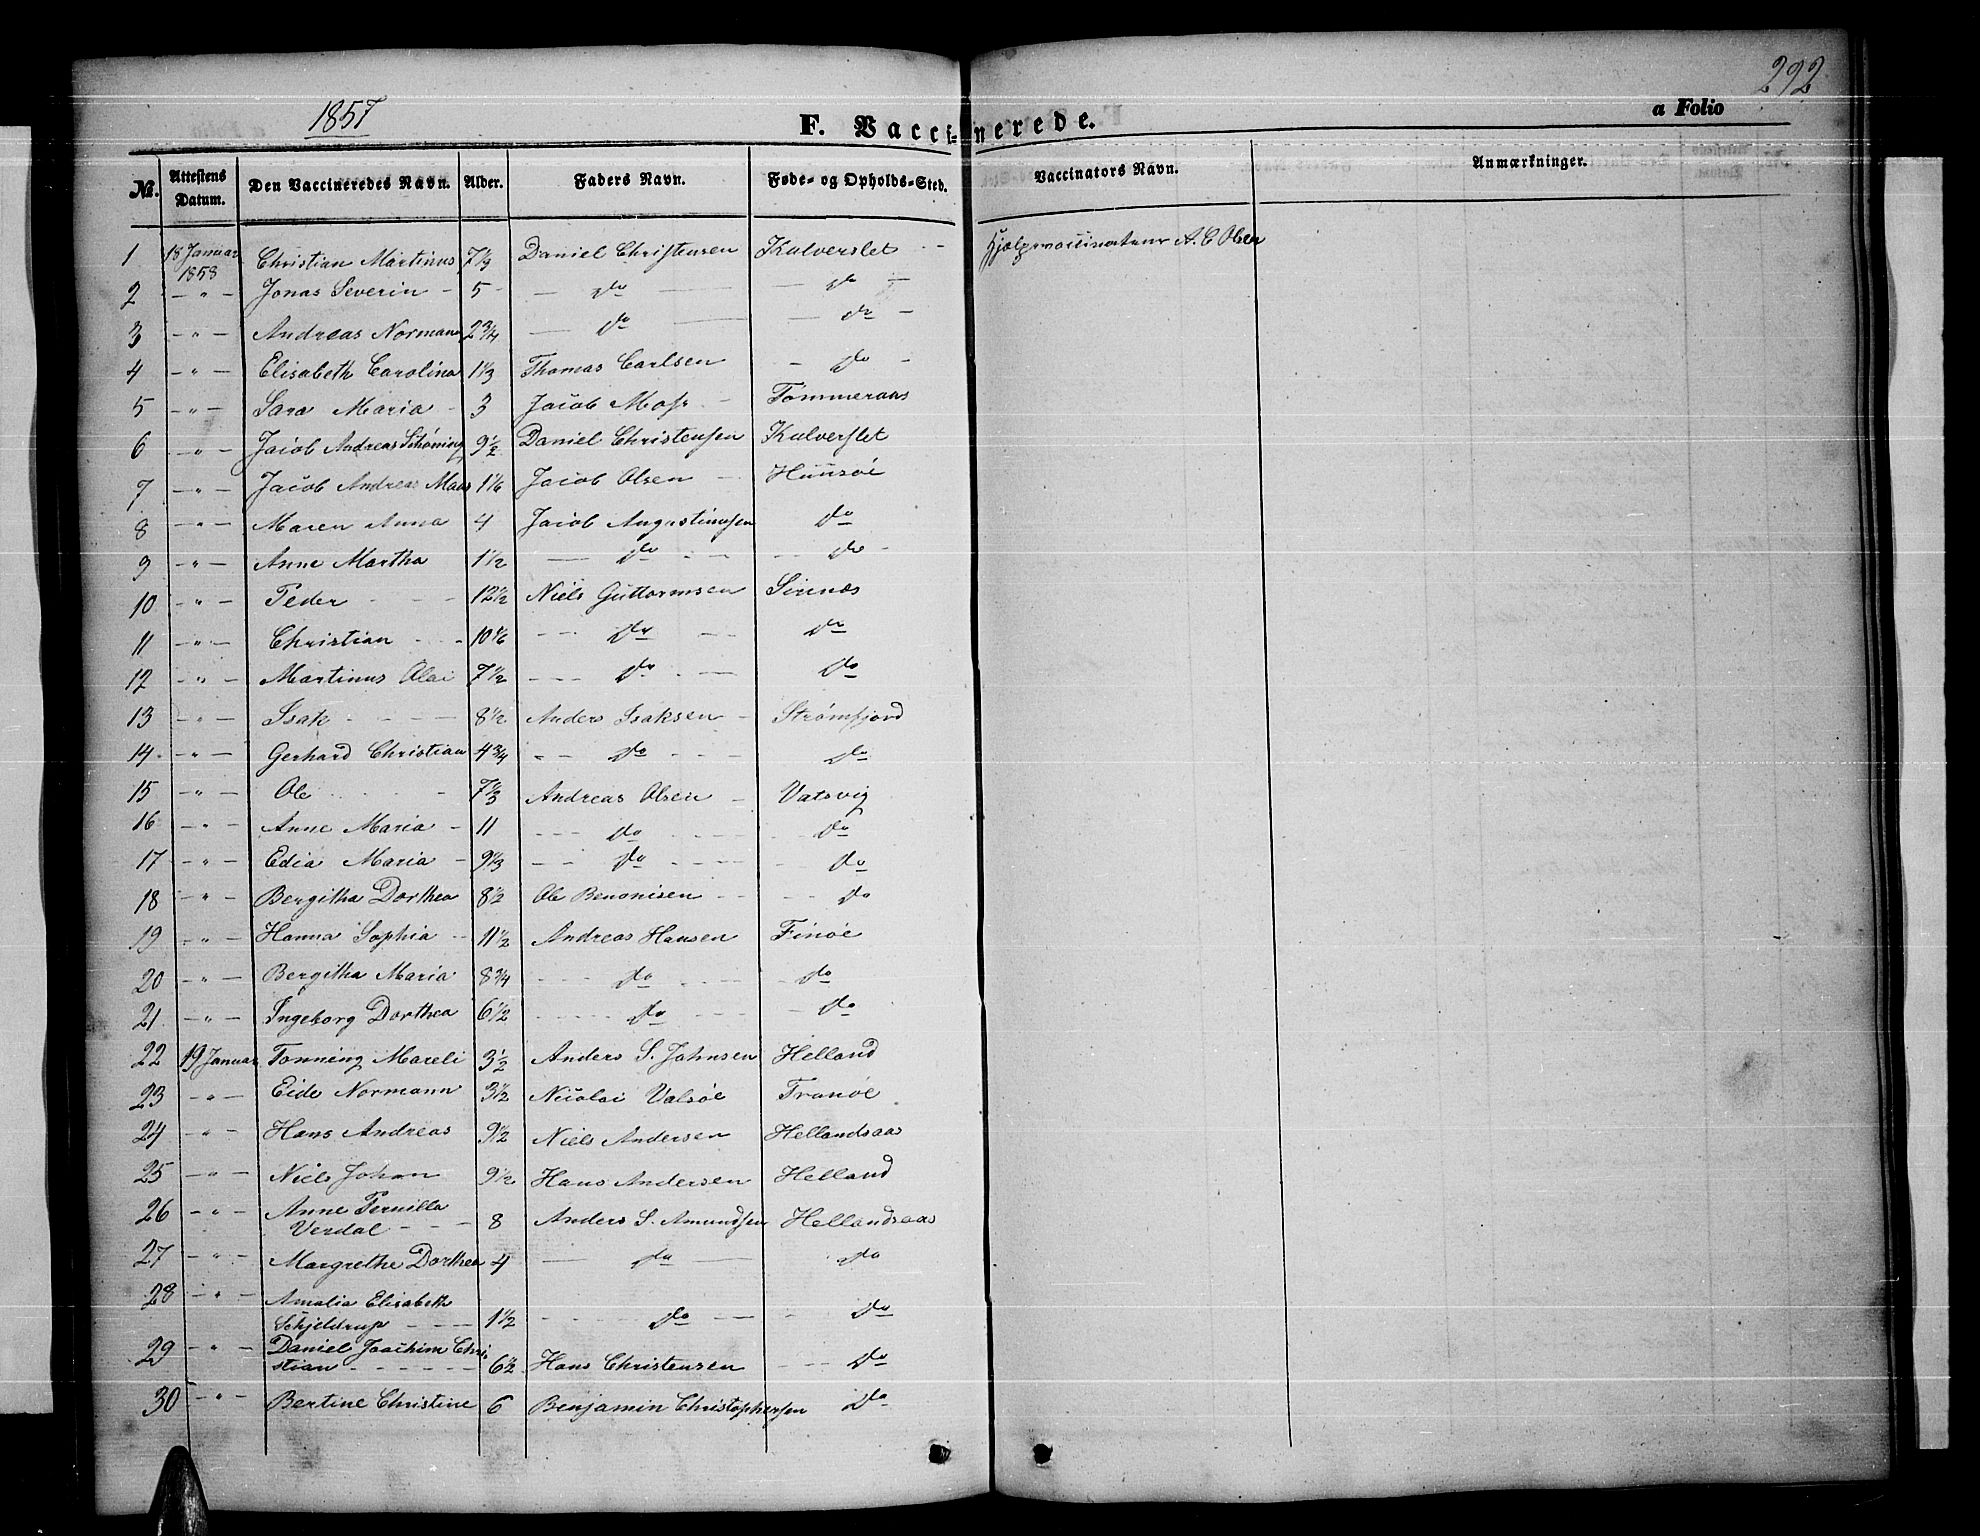 292
1857
F. Vaccinerede.
a Folio
Nr. Attestens Datum. Den Vaccineredes Navn. Alder. Faders Navn. Føde- og Opholds-Sted. Vaccinators Navn. Anmærkninger.
1 18 Januar 1858 Christian Martinus 7 1/3 Daniel Christensen Kulverslet Hjælpevaccinateur A. C. Olsen
2 - " - Jonas Severin - 5 - do - do -
3 - " - Andreas Normann 2 3/4 - do - do -
4 - " - Elisabeth Carolina 1 1/3 Thomas Carlsen - do -
5 - " - Sara Maria - 3 Jacob Mosr - Tommeraas
6 - " - Jacob Andreas Schöning 9 1/2 Daniel Christensen Kulverslet
7 - " - Jacob Andreas Maas 1 1/6 Jacob Olsen - Huusøe
8 - " - Maren Anna 4 Jacob Augustinussen do
9 - " - Anne Martha 1 1/2 - do - - do -
10 - " - Peder - - 12 1/2 Niels Guttormsen Sirinæs
11 - " - Christian - - 10 1/6 - do - do
12 - " - Martinus Olai 7 1/2 - do - do
13 - " - Isak - - 8 1/2 Anders Isaksen - Strømfjord
14 - " - Gerhard Christian 4 3/4 - do - do
15 - " - Ole - 7 2/3 Andreas Olsen - Vatsvig
16 - " - Anne Maria - 11 - do - do
17 - " - Edia Maria - 9 1/3 - do - do
18 - " - Bergitha Dorthea 8 1/2 Ole Benonisen - do
19 - " - Hanna Sophia - 11 1/2 Andreas Hansen Finøe
20 - " - Bergitha Maria 8 3/4 - do - do
21 - " - Ingeborg Dorthea 6 1/2 - do - do
22 19 Januar Tonning Mareli 3 1/2 Anders S. Johnsen Helland
23 - " - Eide Normann 3 1/2 Nicolai Valsøe Tranøe
24 - " - Hans Andreas 9 1/2 Niels Andersen Hellandsaas
25 - " - Niels Johan 9 1/2 Hans Andersen Helland
26 - " - Anne Pernilla
Verdal - - 8 Anders S. Amundsen Hellandsaas
27 - " - Margrethe Dorthea 4 - do - do
28 - " - Amalia Elisabeth
Schjeldrup - - 1 1/2 - do - do
29 - " - Daniel Joachim Chri-
stian - - 6 1/2 Hans Christensen - do
30 - " - Bertine Christine 6 Benjamin Christophersen do